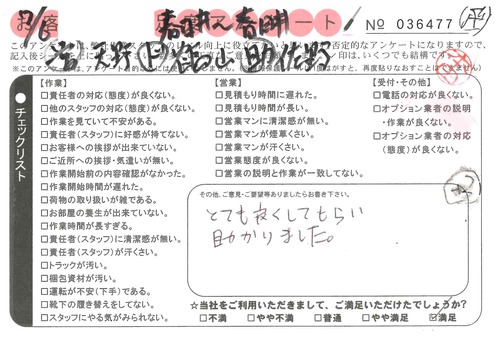 NO 036477
このアンケートは、
否定的なアンケートになりますので、
記入後シー
印は、いくつでも結構です
チェックリスト
【作業】
□責任者の対応(態度)が良くない。
□他のスタッフの対応(態度)が良くない。
□作業を見ていて不安がある。
□責任者(スタッフ)に好感が持てない。
□お客様への挨拶が出来ていない。
□ご近所への挨拶・気遣いが無い。
□作業開始前の内容確認がなかった。
□作業開始時間が遅れた。
□荷物の取り扱いが雑である。
□お部屋の養生が出来ていない。
□作業時間が長すぎる。
□責任者(スタッフ)に清潔感が無い。
□責任者(スタッフ)が汗くさい。
□トラックが汚い。
□梱包資材が汚い。
□運転が不安(下手)である。
□靴下の履き替えをしてない。
□スタッフにやる気がみられない。
【営業】
□見積もり時間に遅れた。
□見積もり時間が長い。
□営業マンに清潔感が無い。
□営業マンが煙草くさい。
□営業マンが汗くさい。
□営業態度が良くない。
□営業の説明と作業が一致してない。
【受付・その他】
□電話の対応が良くない。
□オプション業者の説明
・作業が良くない。
□オプション業者の対応
(態度)が良くない。
その他、ご意見・ご要望等ありましたらお書き下さい。
とても良くしてもらい
助かりました。
☆当社をご利用いただきまして、ご満足いただけたでしょうか?
□不満 □やや不満 □普通 □やや満足 ☑満足